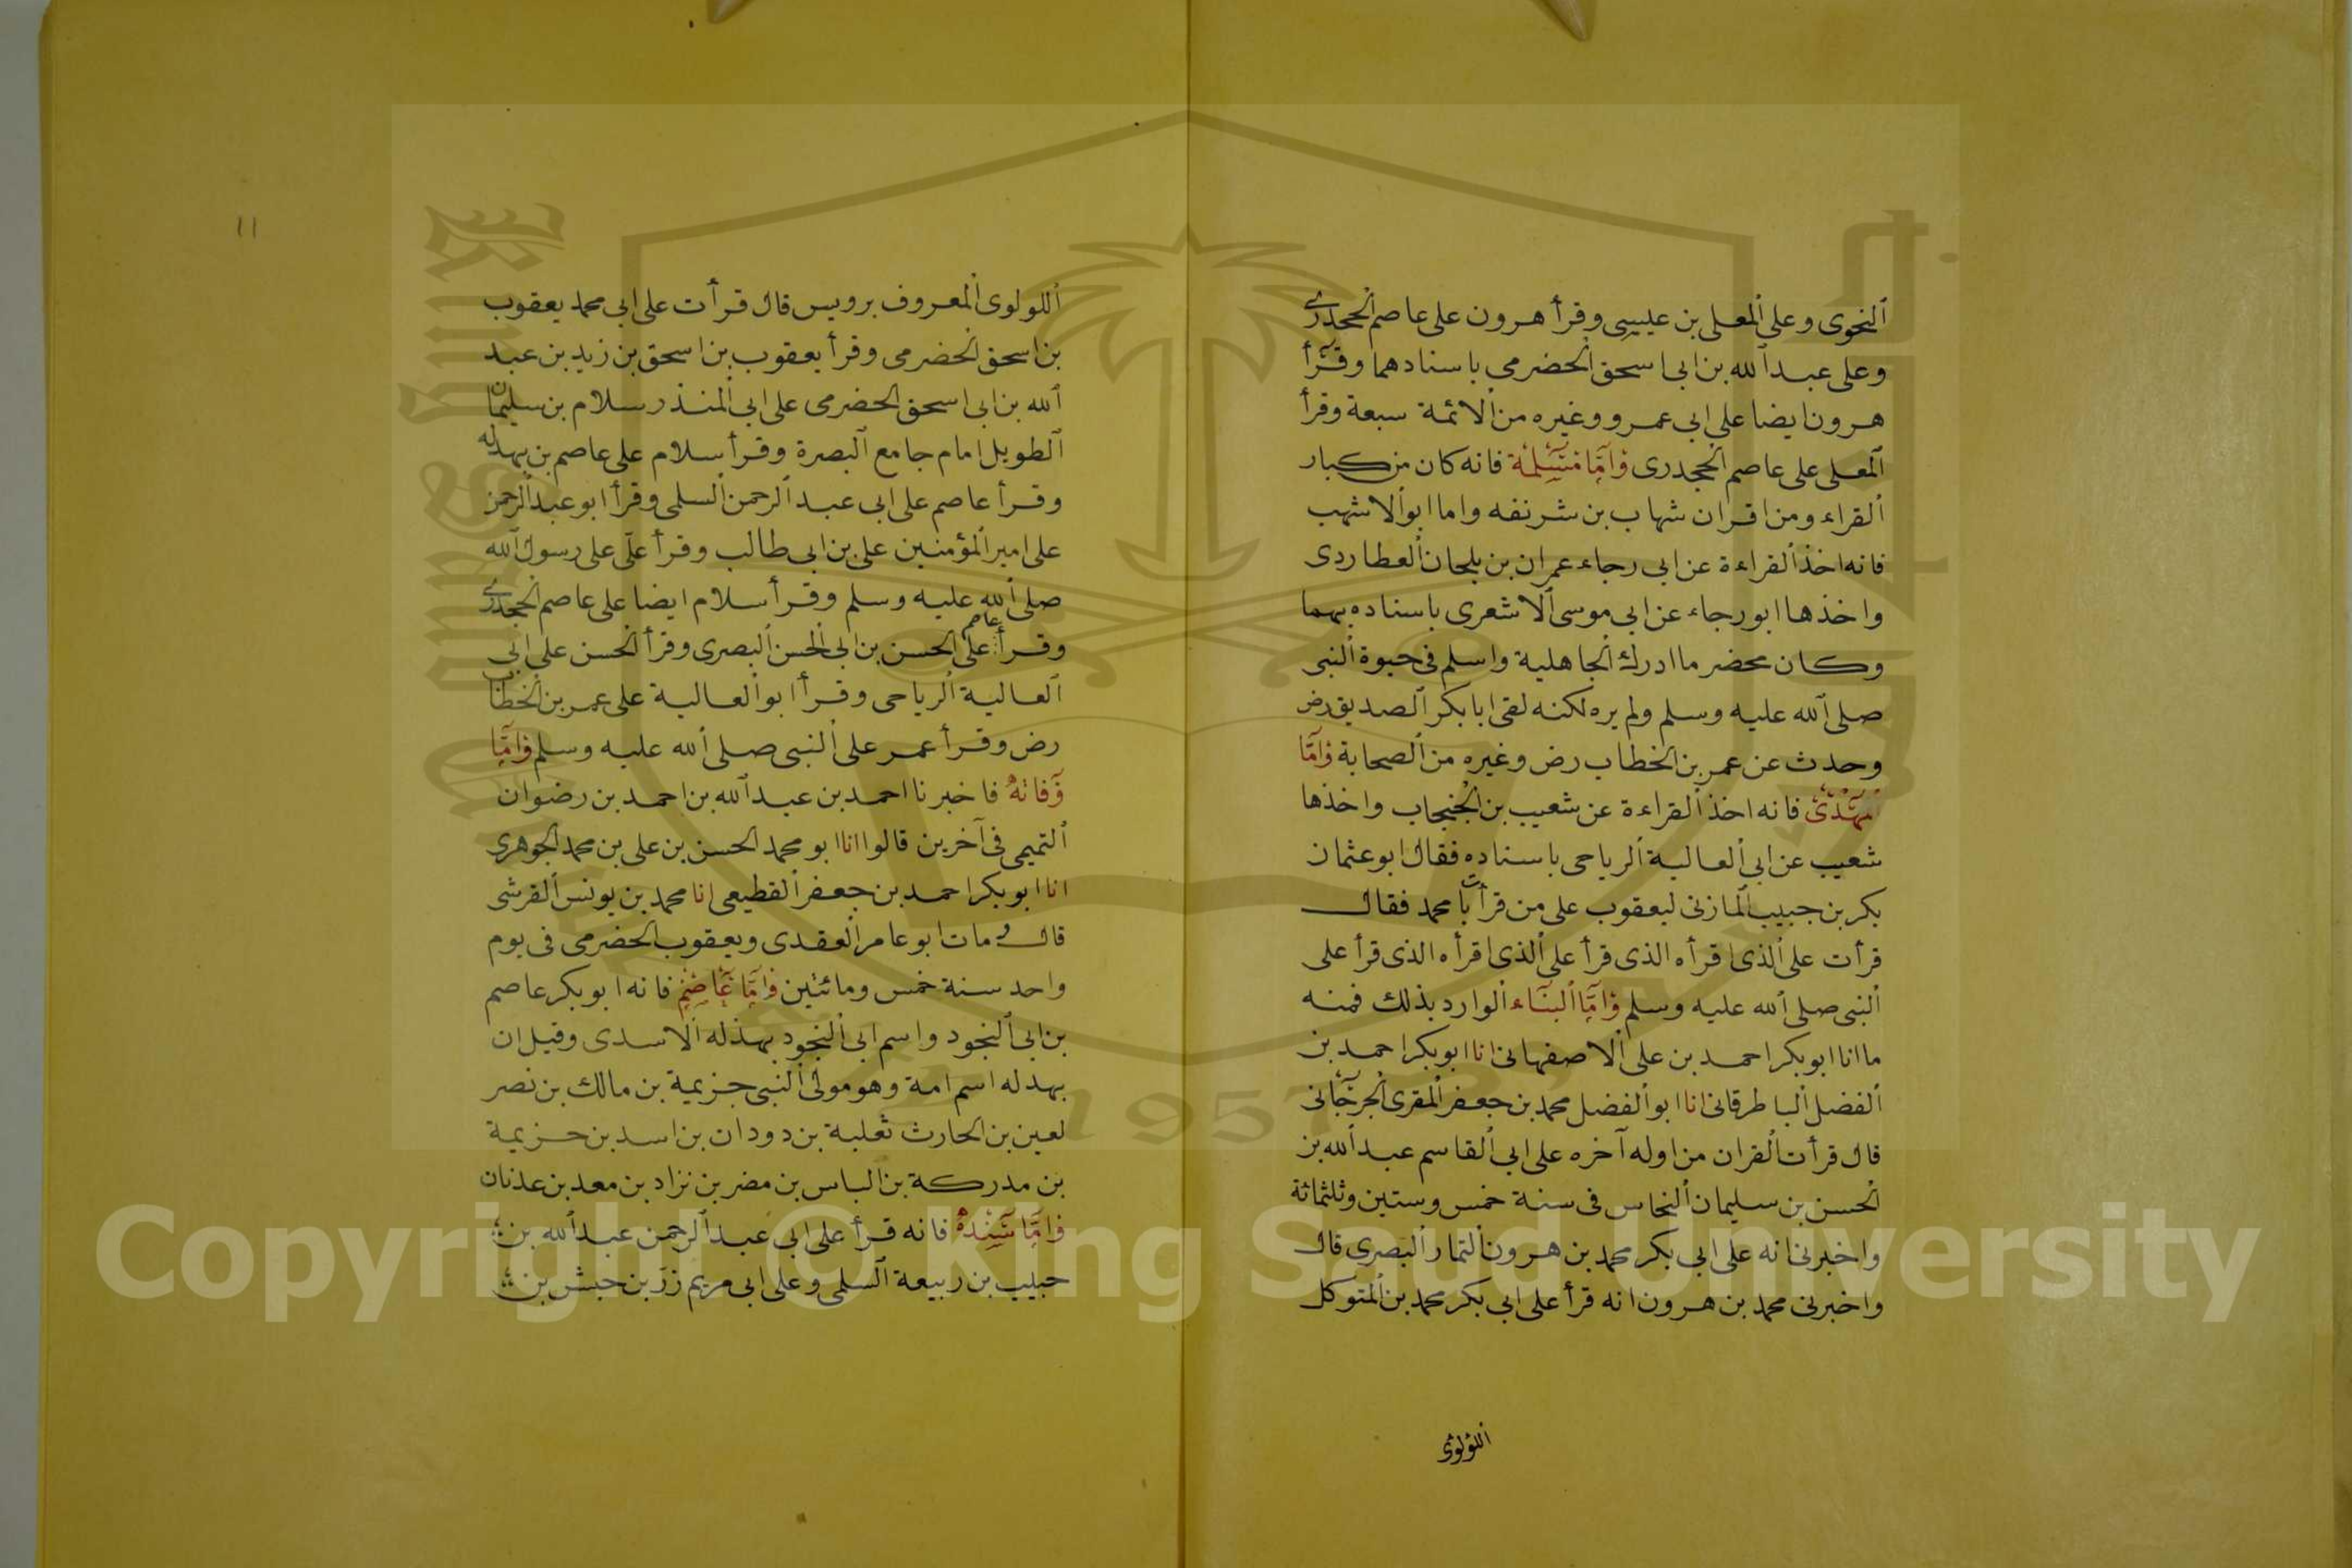 النحوى وعلى المعلى بن عيسى وقرأ هرون على عاصم الجحدرى
وعلى عبد الله بن ابى اسحق الحضرمى باسنادهما وقرأ
هرون ايضا على ابى عمرو وغيره من الائمة سبعة وقرأ
المعلى على عاصم الجحدرى واما مسلمة فانه كان من كبار
القراء ومن اقران شهاب بن شرنفه واما ابو الاشهب
فانه اخذ القراءة عن ابى رجاء عمران بن ملحان العطاردى
واخذها ابو رجاء عن ابى موسى الاشعرى باسناده بهما
وكان مخضرما ادرك الجاهلية واسلم فى حيوة النبى
صلى الله عليه وسلم ولم يره لكنه لقى ابا بكر الصديق رض
وحدث عن عمر بن الخطاب رض وغيره من الصحابة واما
مهدى فانه اخذ القراءة عن شعيب بن الحبحاب واخذها
شعيب عن ابى العالية الرياحى باسناده فقال ابو عثمان
بكر بن حبيب المازنى ليعقوب على من قرأت يا محمد فقال
قرأت على الذى اقرأه الذى قرأ على الذى اقرأه الذى قرأ على
النبى صلى الله عليه وسلم واما البناء الوارد بذلك فمنه
ما انا ابو بكر احمد بن على الاصفهانى انا ابو بكر احمد بن
الفضل الباطرقانى انا ابو الفضل محمد بن جعفر المقرى الجرجانى
قال قرأت القران من اوله آخره على ابى القاسم عبد الله بن
الحسن بن سليمان النخاس فى سنة خمس وستين وثلثمائة
واخبرنى انه على ابى بكر محمد بن هرون التمار البصرى قال
واخبرنى محمد بن هرون انه قرأ على ابى بكر محمد بن المتوكل
اللؤلوى
١١
اللولوى المعروف برويس قال قرأت على ابى محمد يعقوب
بن اسحق الحضرمى وقرأ يعقوب بن اسحق بن زيد بن عبد
الله بن ابى اسحق الحضرمى على ابى المنذر سلام بن سليمان
الطويل امام جامع البصرة وقرأ سلام على عاصم بن بهدله
وقرأ عاصم على ابى عبد الرحمن السلمى وقرأ ابو عبد الرحمن
على امير المؤمنين على بن ابى طالب وقرأ على على رسول الله
صلى الله عليه وسلم وقرأ سلام ايضا على عاصم الجحدرى
وقرأ عاصم على الحسن بن ابى الحسن البصرى وقرأ الحسن على ابى
العالية الرياحى وقرأ ابو العالية على عمر بن الخطاب
رض وقرأ عمر على النبى صلى الله عليه وسلم واما
وفاته فاخبرنا احمد بن عبد الله بن احمد بن رضوان
التميمى فى آخرين قالوا انا ابو محمد الحسن بن على بن محمد الجوهرى
انا ابو بكر احمد بن جعفر القطيعى انا محمد بن يونس القرشى
قال مات ابو عامر العقدى ويعقوب الحضرمى فى يوم
واحد سنة خمس ومائتين واما عاصم فانه ابو بكر عاصم
بن ابى النجود واسم ابى النجود بهذله الاسدى وقيل ان
بهدله اسم امة وهو مولى النبى جزيمة بن مالك بن نصر
لعين بن الحارث ثعلبة بن دودان بن اسد بن خزيمة
بن مدركة بن الياس بن مضر بن نزاد بن معد بن عدنان
واما سنده فانه قرأ على ابى عبد الرحمن عبد الله بن
حبيب بن ربيعة السلمى وعلى ابى مريم زر بن حبش بن
Copyright © King Saud University
1957